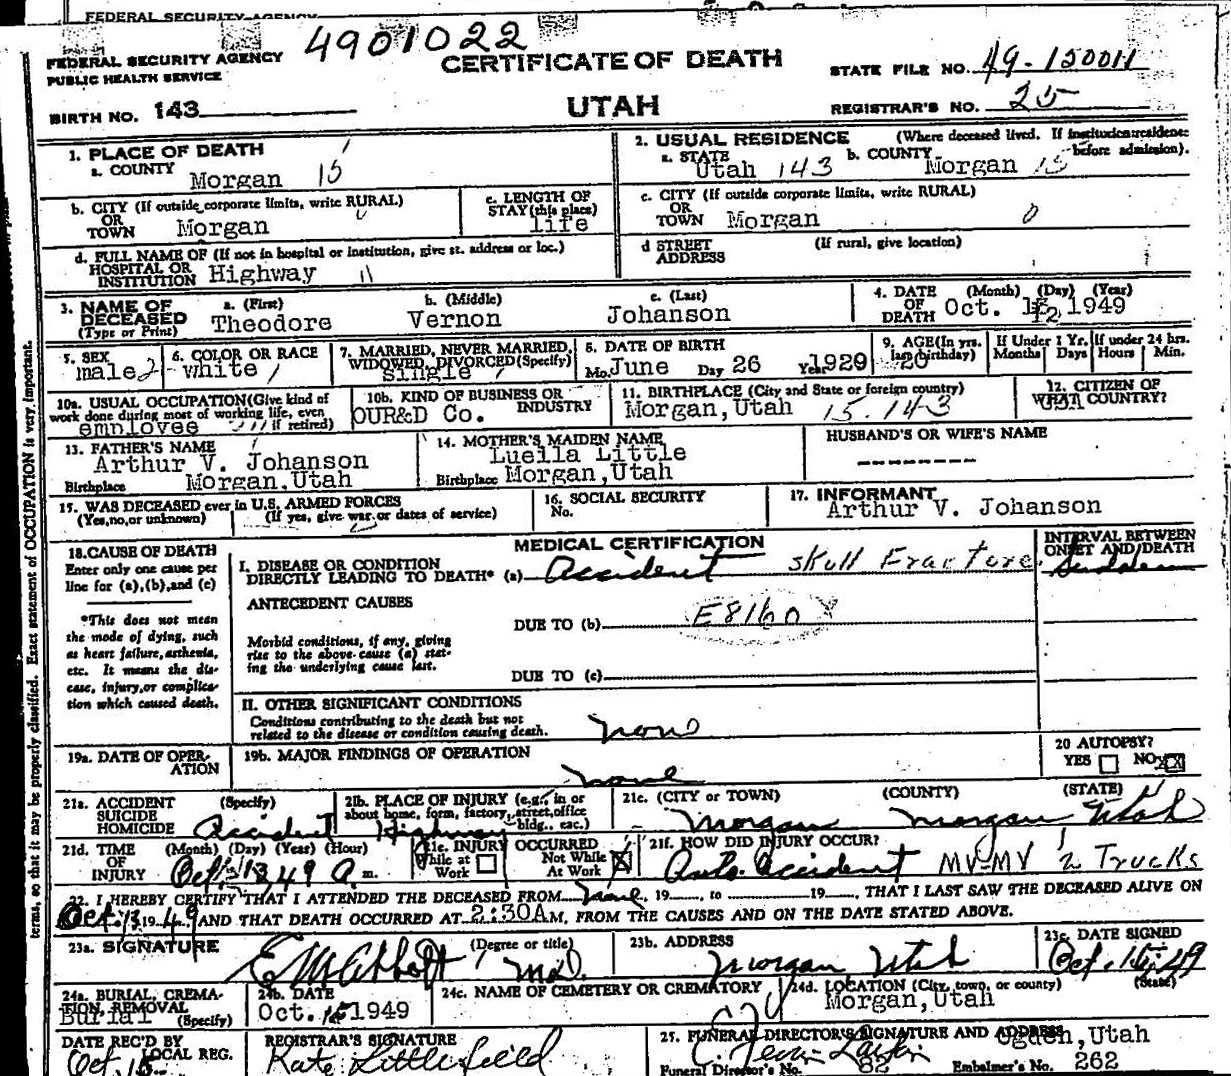 FEDERAL SECURITY AGENCY
4901022
FEDERAL SECURITY AGENCY
PUBLIC HEALTH SERVICE
CERTIFICATE OF DEATH
STATE FILE NO. 49-150011
BIRTH NO. 143
UTAH
REGISTRAR'S NO. 25
1. PLACE OF DEATH
a. COUNTY
Morgan 15
2. USUAL RESIDENCE (Where deceased lived. If institution: residence before admission).
a. STATE Utah 143 b. COUNTY Morgan 15
b. CITY (If outside corporate limits, write RURAL)
OR
TOWN Morgan
c. LENGTH OF STAY (this place)
life
c. CITY (If outside corporate limits, write RURAL)
OR
TOWN Morgan 0
d. FULL NAME OF (If not in hospital or institution, give st. address or loc.)
HOSPITAL OR
INSTITUTION Highway 11
d STREET (If rural, give location)
ADDRESS
3. NAME OF DECEASED
(Type or Print)
a. (First) b. (Middle) c. (Last)
Theodore Vernon Johanson
4. DATE OF DEATH (Month) (Day) (Year)
Oct. 1949
5. SEX
male 2
6. COLOR OR RACE
white 1
7. MARRIED, NEVER MARRIED, WIDOWED, DIVORCED (Specify)
single
8. DATE OF BIRTH
Mo. June Day 26 Year 1929
9. AGE (In yrs. last birthday)
20
If Under 1 Yr. Months Days
If under 24 hrs. Hours Min.
10a. USUAL OCCUPATION (Give kind of work done during most of working life, even if retired)
employee
10b. KIND OF BUSINESS OR INDUSTRY
OUR&D Co.
11. BIRTHPLACE (City and State or foreign country)
Morgan,Utah 15.143
12. CITIZEN OF WHAT COUNTRY?
USA
13. FATHER'S NAME
Arthur V. Johanson
Birthplace Morgan,Utah
14. MOTHER'S MAIDEN NAME
Luella Little
Birthplace Morgan,Utah
HUSBAND'S OR WIFE'S NAME
---------
15. WAS DECEASED ever in U.S. ARMED FORCES
(Yes,no,or unknown) (If yes, give war or dates of service)
16. SOCIAL SECURITY
No.
17. INFORMANT
Arthur V. Johanson
18. CAUSE OF DEATH
Enter only one cause per
line for (a),(b),and (c)
*This does not mean
the mode of dying, such
as heart failure, asthenia,
etc. It means the dis-
ease, injury,or complica-
tion which caused death.
MEDICAL CERTIFICATION
INTERVAL BETWEEN
ONSET AND DEATH
I. DISEASE OR CONDITION
DIRECTLY LEADING TO DEATH* (a) Accident Skull Fracture Sudden
ANTECEDENT CAUSES
DUE TO (b) E8160
Morbid conditions, if any, giving
rise to the above cause (a) stat-
ing the underlying cause last.
DUE TO (c)
II. OTHER SIGNIFICANT CONDITIONS
Conditions contributing to the death but not
related to the disease or condition causing death. none
19a. DATE OF OPER-
ATION
19b. MAJOR FINDINGS OF OPERATION
none
20 AUTOPSY?
YES NO X
21a. ACCIDENT (Specify)
SUICIDE
HOMICIDE Accident
21b. PLACE OF INJURY (e.g., in or
about home, farm, factory, street, office
bldg., etc.)
Highway
21c. (CITY or TOWN) (COUNTY) (STATE)
Morgan Morgan Utah
21d. TIME (Month) (Day) (Year) (Hour)
OF
INJURY Oct. 13, 49 A m.
21e. INJURY OCCURRED
While at Work Not While At Work X
21f. HOW DID INJURY OCCUR?
Auto. accident MV-MV 2 Trucks
22. I HEREBY CERTIFY THAT I ATTENDED THE DECEASED FROM none, 19 , to 19 , THAT I LAST SAW THE DECEASED ALIVE ON
Oct. 13 1949 AND THAT DEATH OCCURRED AT 2:30A M, FROM THE CAUSES AND ON THE DATE STATED ABOVE.
23a. SIGNATURE (Degree or title)
E M Abbott Md.
23b. ADDRESS
Morgan, Utah
23c. DATE SIGNED
Oct. 15, 49
24a. BURIAL, CREMA-
TION, REMOVAL
(Specify)
Burial
24b. DATE
Oct. 1949
24c. NAME OF CEMETERY OR CREMATORY
24d. LOCATION (City, town, or county) (State)
Morgan,Utah
DATE REC'D BY
LOCAL REG.
Oct. 15
REGISTRAR'S SIGNATURE
Kate Littlefield
25. FUNERAL DIRECTOR'S SIGNATURE AND ADDRESS
Ogden,Utah
Funeral Director's No. 82 Embalmer's No. 262
terms, so that it may be properly classified. Exact statement of OCCUPATION is very important.